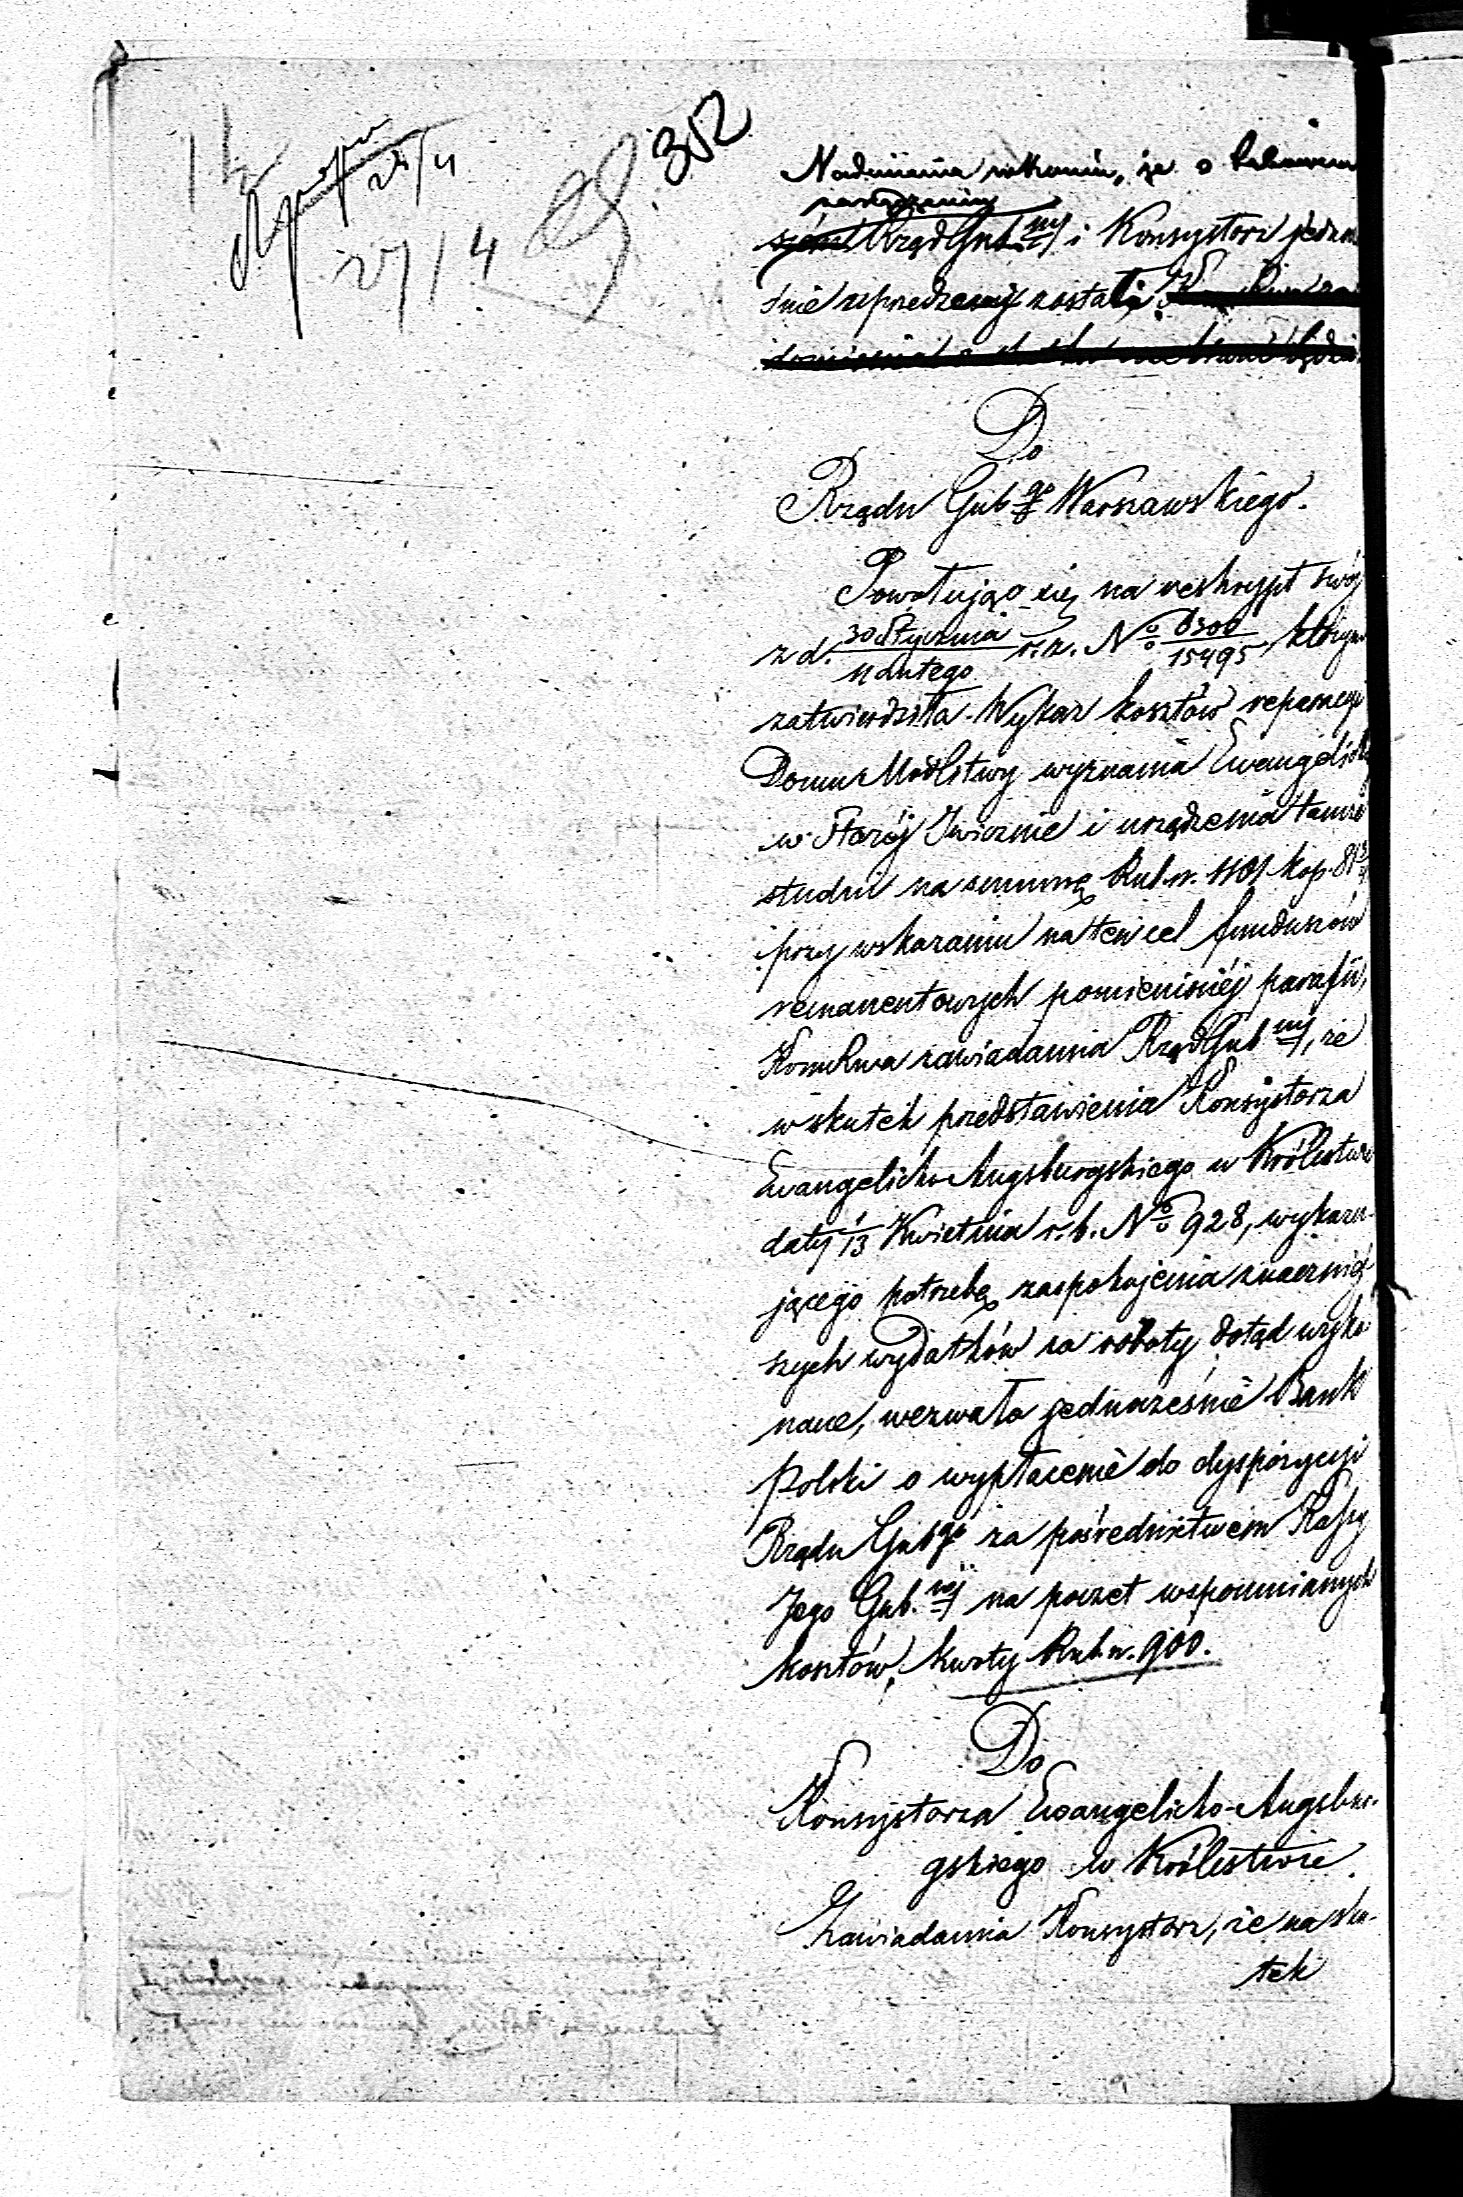 352
27/4
27/4
Nadmienia w końcu, że o
zarządzeniu
Rząd Gub.ny i Konsystorz jedno
śnie uprzedzeni zostali.
Do
Rządu Gub.go Warszawskiego.
Powołując się na reskrypt swój
z d. 30 Stycznia / 11 Lutego r. z. No 6300/15495, którym
zatwierdziła Wykaz kosztów reparacyi
Domu Modlitwy wyznania Ewangelick
w Starej Iwicznie i urządzenia tamże
studni na summę Rub. sr. 1101 kop. 81
przy wskazaniu na ten cel funduszów
remanentowych pomienionéj parafii,
zawiadamia Rząd Gub.ny, że
w skutek przedstawienia Konsystorza
Ewangelicko-Augsburgskiego w Królestwie
daty 1/13 Kwietnia r. b. No 928, wykazu-
jącego potrzebę zaspokojenia znaczniej
szych wydatków za roboty dotąd wyko
nane, wezwała jednocześnie Bank
Polski o wypłacenie do dyspozycyi
Rządu Gub.go za pośrednictwem Kassy
Jego Gub.nej na poczet wspomnianych
kosztów, kwoty Rub. sr. 900.
Do
Konsystorza Ewangelicko-Augsbur-
gskiego w Królestwie.
Zawiadamia Konsystorz, że na sku-
tek